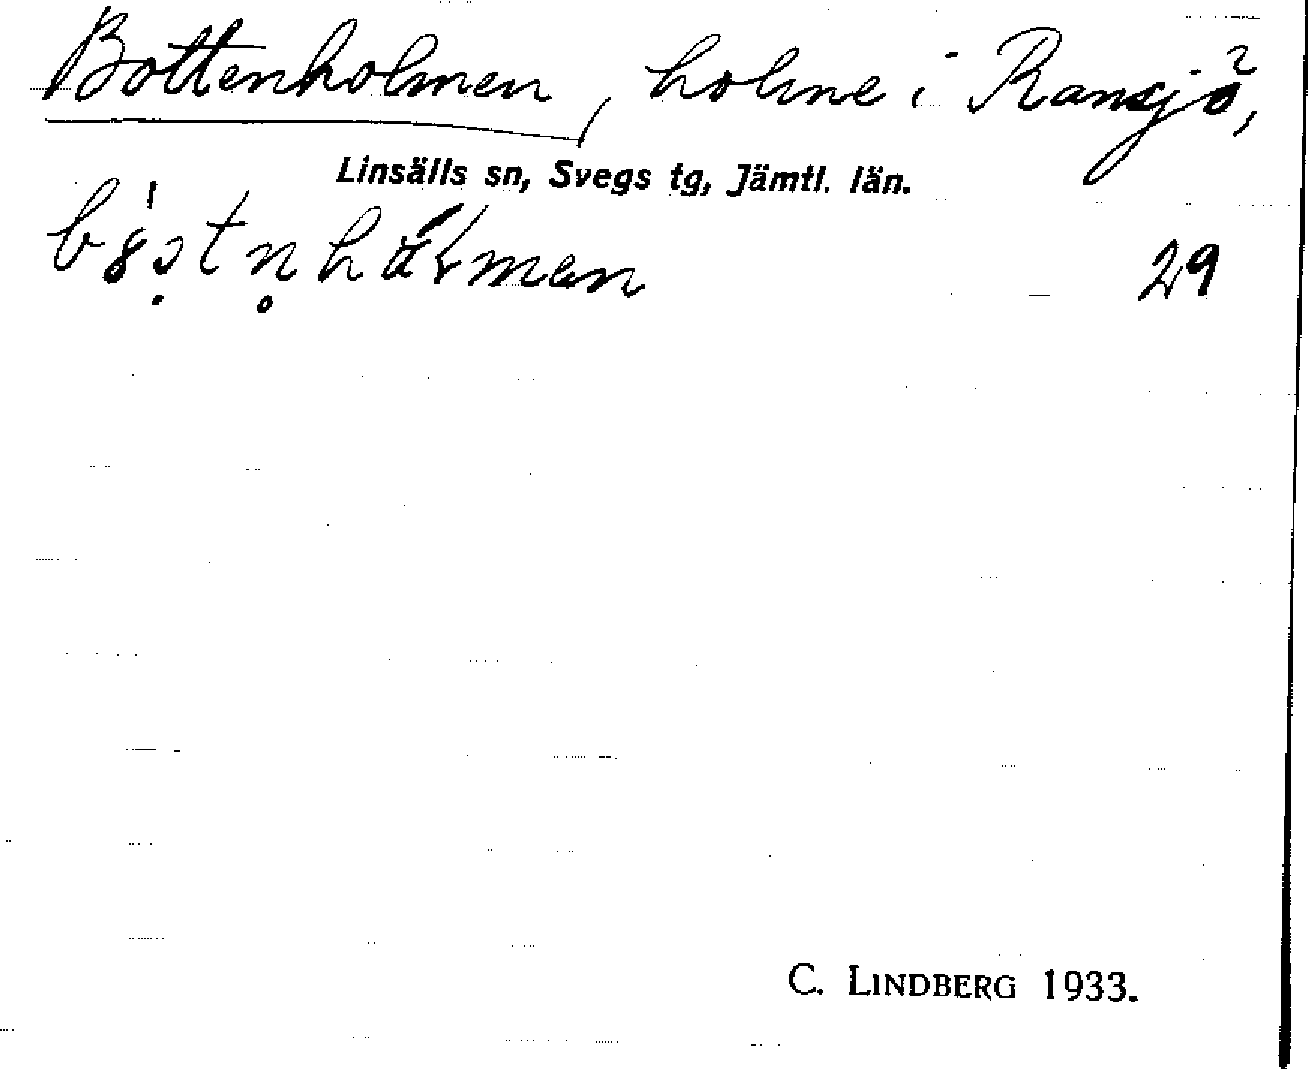 Bottenholmen, holme i Ransjö,
Linsälls sn, Svegs tg, Jämtl. län.
29
C. LINDBERG 1933.